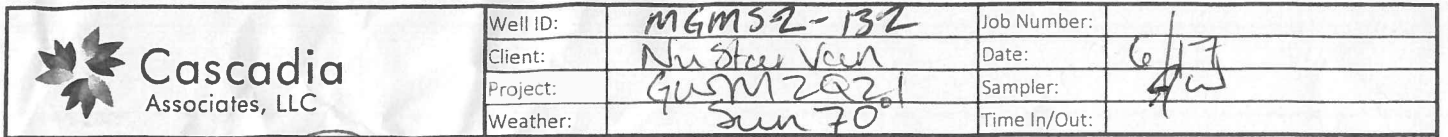 Cascadia
Associates, LLC
Well ID: MGMS2-132 Job Number:
Client: NuStar Van Date: 6/17
Project: GWM2Q21 Sampler:
Weather: Sun 70° Time In/Out: